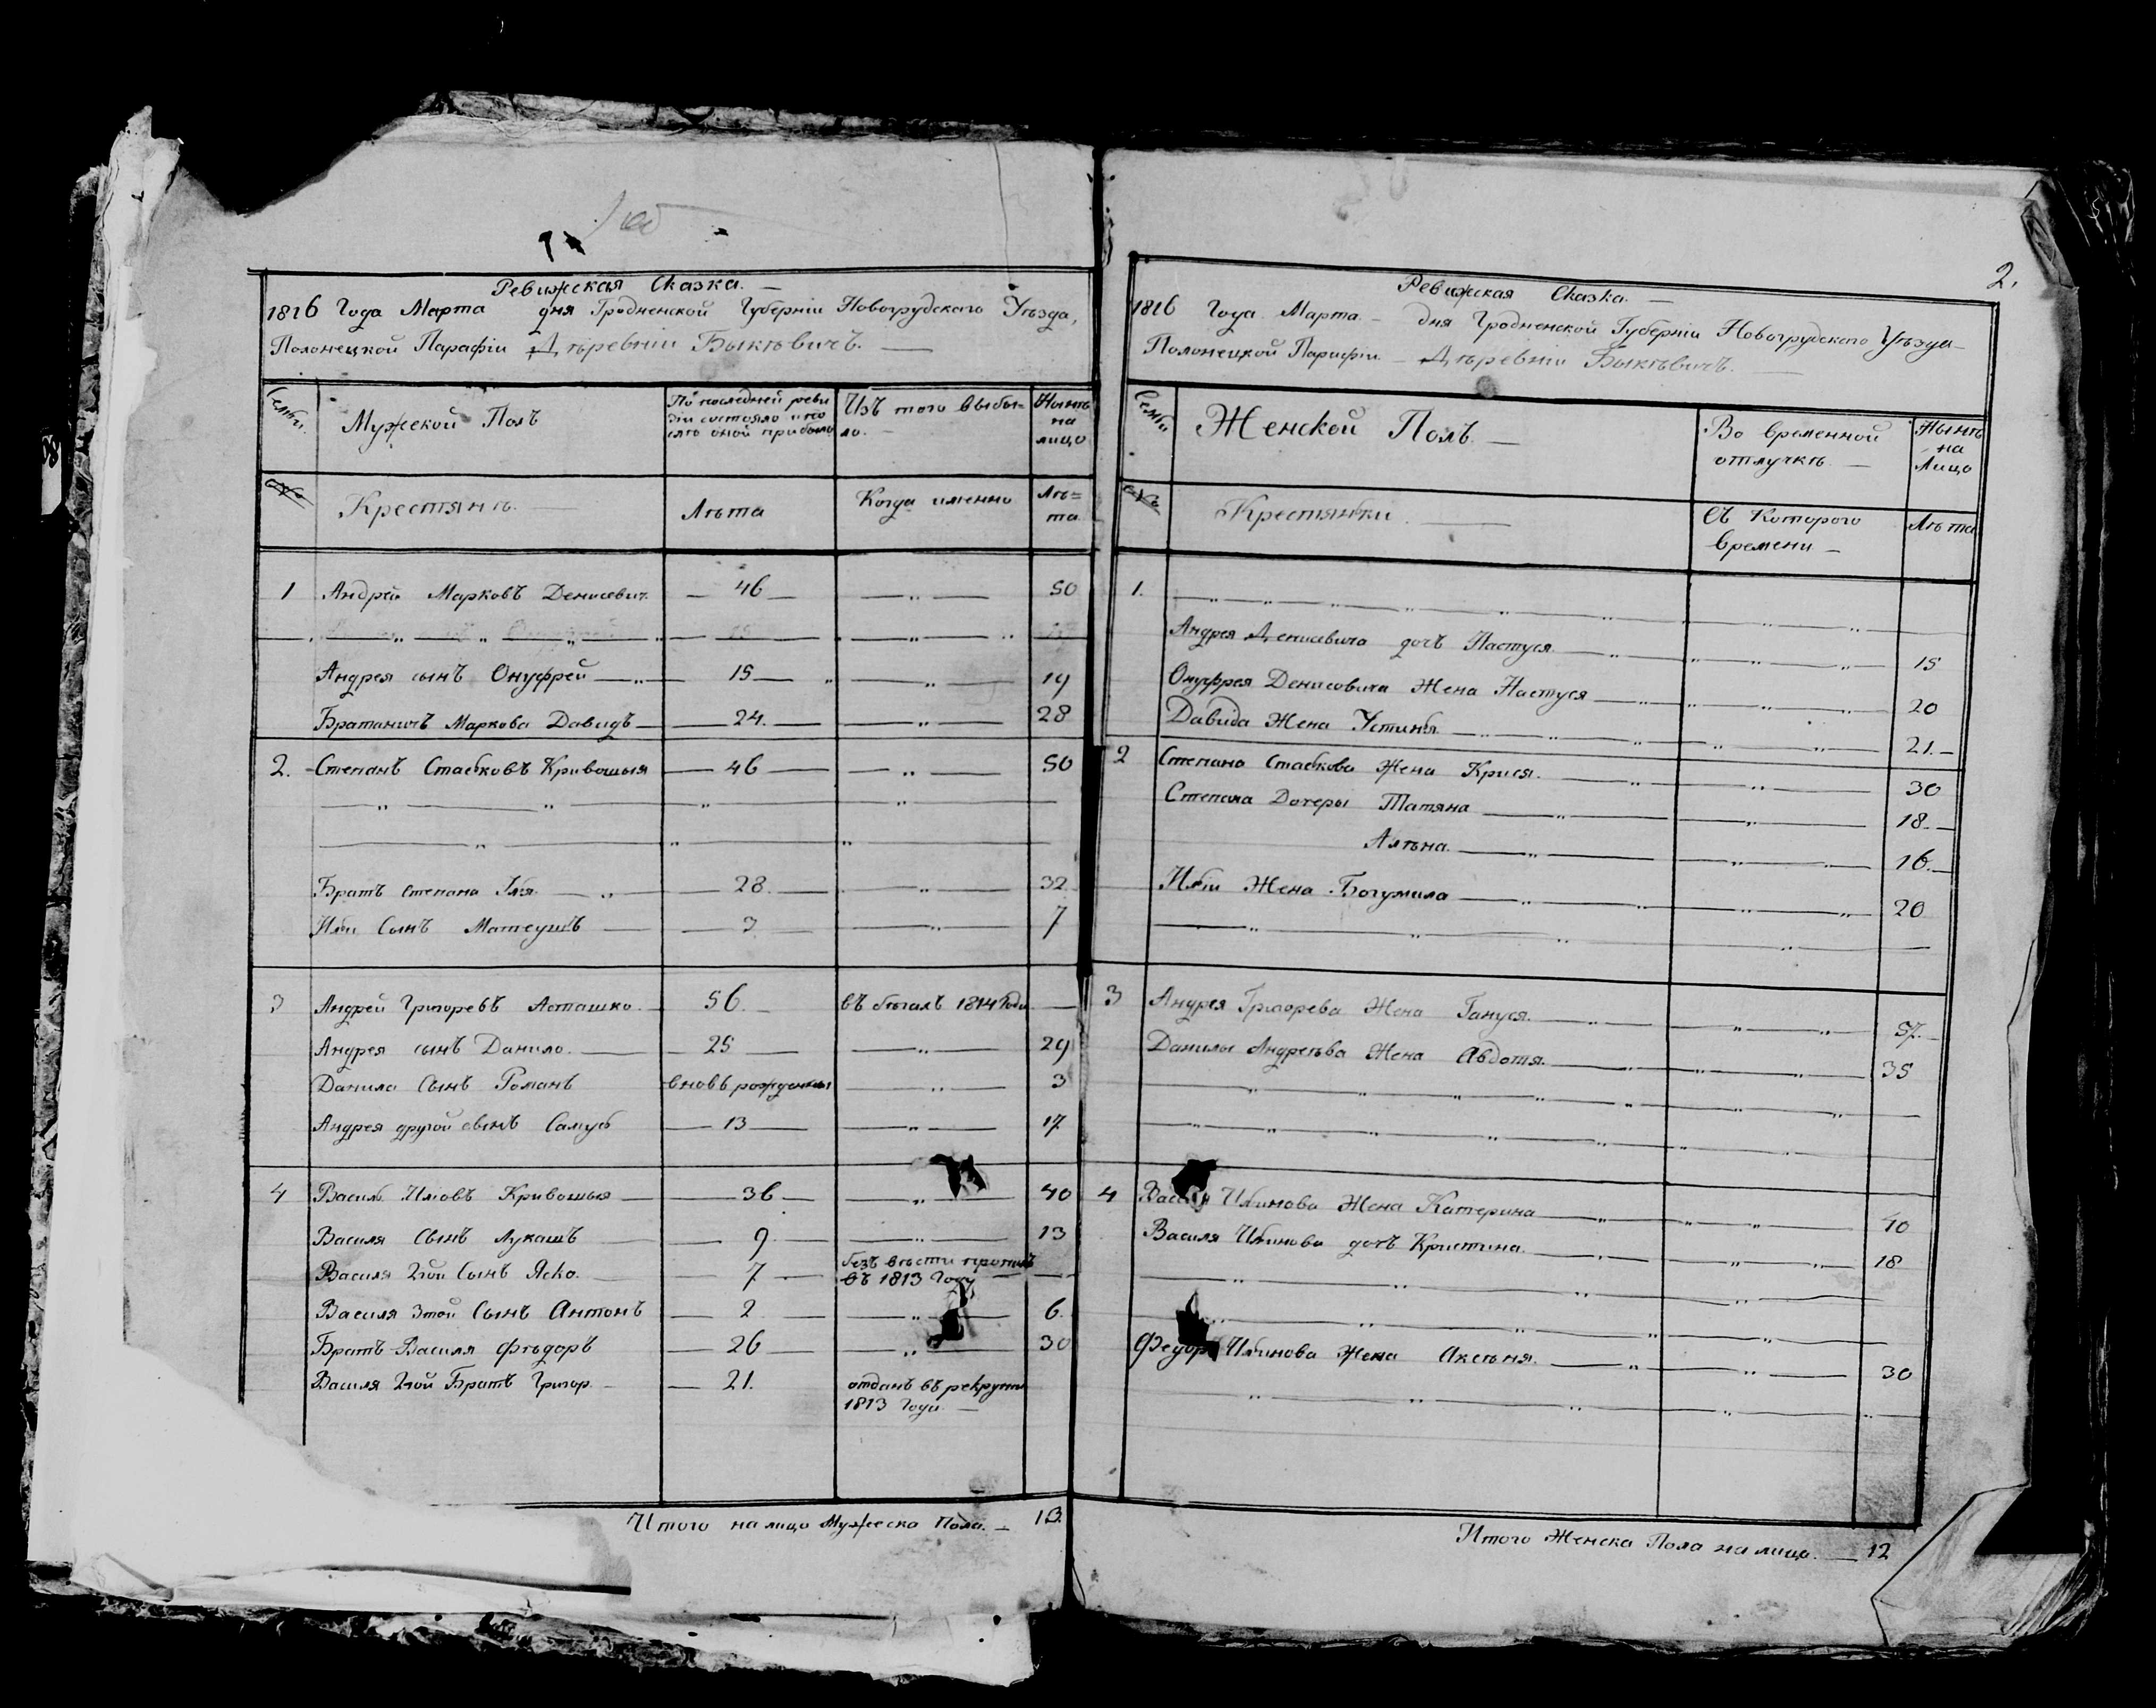 Ревижская Сказка. —
1816 Года Марта дня Гродненской Губерніи Новогрудского Уѣзда,
Полонецкой Парафіи Дѣревніи Быкѣвичъ. —
Семьи. Мужеской Полъ По последней реви Изъ того выбы= Нынѣ
зіи состояло и по ло. — на
слѣ оной прибыло лицо
Крестянѣ. — Лѣта Когда именно Лѣ=
та
1 Андрей Марковъ Денисевич — 46 — — „ — 50
Андрея сынъ Онуфрей — 15 — „ — „ — 19
Братаничъ Маркова Давидъ — 24. — — „ — 28
2. Степанъ Стасковъ Кривошыя — 46 — — „ — 50
Братъ Степана Илья. — „ — 28. — — „ — 32
Ильи Сынъ Матеушъ — — 3 — — „ — 7
3 Андрей Григоревъ Асташко. — 56. — въ бѣгахъ 1814 Года —
Андрея сынъ Данило. — 25 — — „ — 29
Данила Сынъ Романъ вновь рожденны — „ — 3
Андрея другой сынъ Самусь — 13 — — „ — 17
4 Василь Илiовъ Кривошыя — 36 — — „ — 40
Василя Сынъ Лукашъ — 9 — — „ — 13
Василя 2гой Сынъ Яско. — 7 — безъ вѣсти пропалъ
въ 1813 Году —
Василя 3той Сынъ Антонъ — 2 — — „ — 6.
Братъ Василя Фѣдоръ — 26 — — „ — 30
Василя 2гой Братъ Григор. — 21. отданъ въ рекруты
1813 Года. —
Итого на лицо Мужеска Пола. — 13.
2.
Ревижская Сказка. —
1816 Года Марта — дня Гродненской Губерніи Новогрудского Уѣзда
Полонецкой Парафіи — Дѣревніи Быкѣвичъ. —
Семьи Женской Полъ. — Во временной Нынѣ
отлучкѣ — на
Лицо
Крестянки. — Съ Которого Лѣта
времени —
1. — „ — „ — „ — „ — „ — „ — „ —
Андрея Денисевича дочъ Настуся. — „ — „ — 15
Онуфрея Денисовича Жена Настуся — „ — „ — 20
Давида Жена Устиня — „ — „ — „ — 21. —
2 Степана Стаскова Жена Крися. — „ — „ — 30
Степана Дочеры Татяна — „ — „ — 18. —
Алѣна. — „ — „ — 16. —
Ильи Жена Богумила — „ — „ — 20
3 Андрея Григорева Жена Гануся. — „ — „ — 57. —
Данилы Андреѣва Жена Авдотя. — „ — „ — 35
4 Василя Ильинова Жена Катерина — „ — „ — 40
Василя Ильинова дочъ Кристина. — „ — „ — 18
Федора Ильинова Жена Аксѣня. — „ — „ — 30
Итого Женска Пола на лицо. — 12